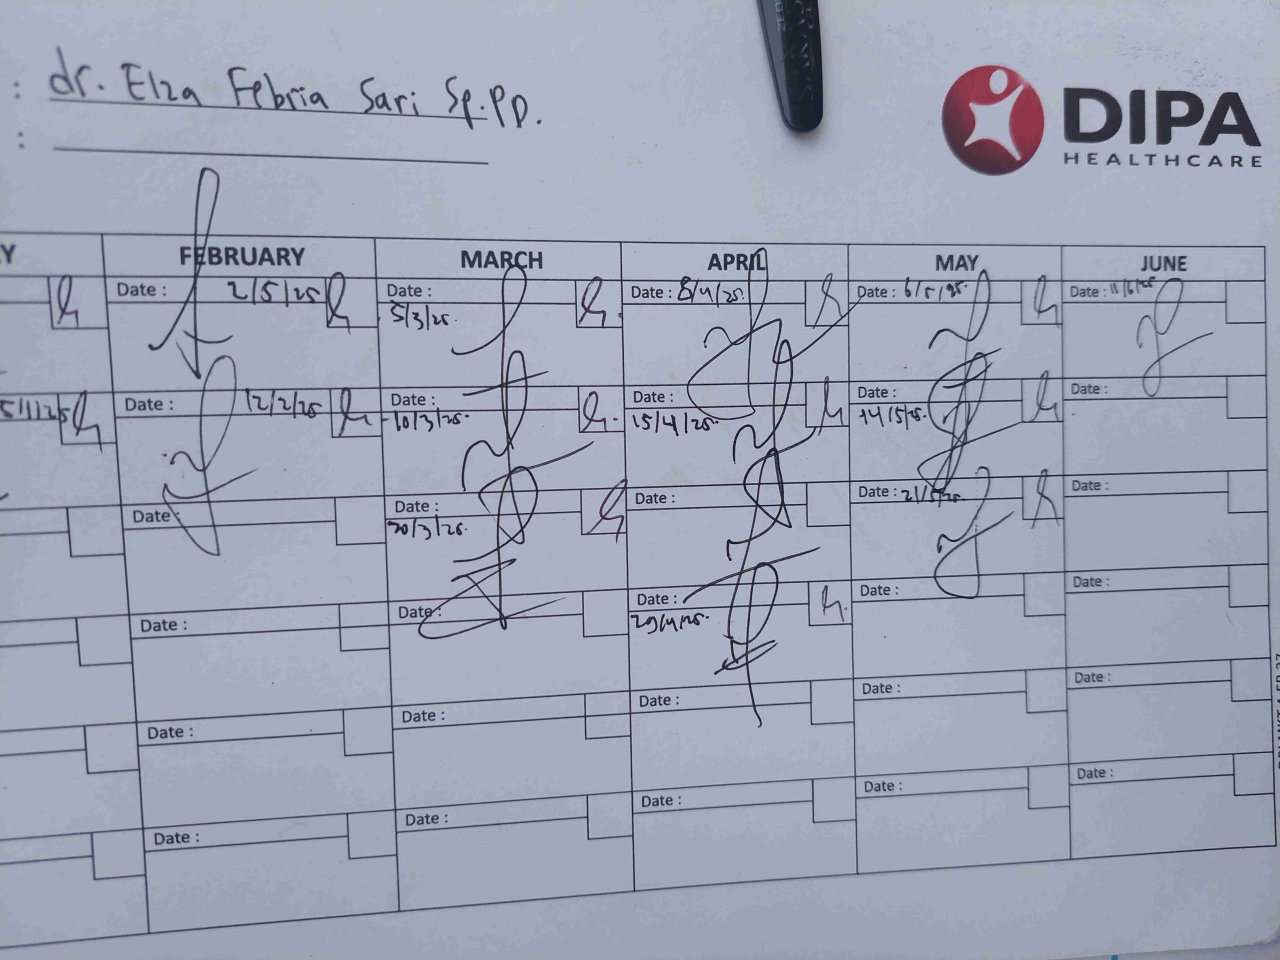 : dr. Elza Febria Sari Sp.PD.
:
DIPA
HEALTHCARE
Y FEBRUARY MARCH APRIL MAY JUNE
Date : 2/5/25 Date : Date : 8/4/25. Date : 6/5/25. Date : 11/6/25
5/3/25.
5/1/25 Date : 12/2/25 Date : Date : Date : Date :
10/3/25. 15/4/25. 14/5/25.
Date : Date : Date : Date : 21/5/25. Date :
20/3/25.
Date : Date : Date : Date : Date :
29/4/25.
Date : Date : Date : Date : Date :
Date : Date : Date : Date : Date :